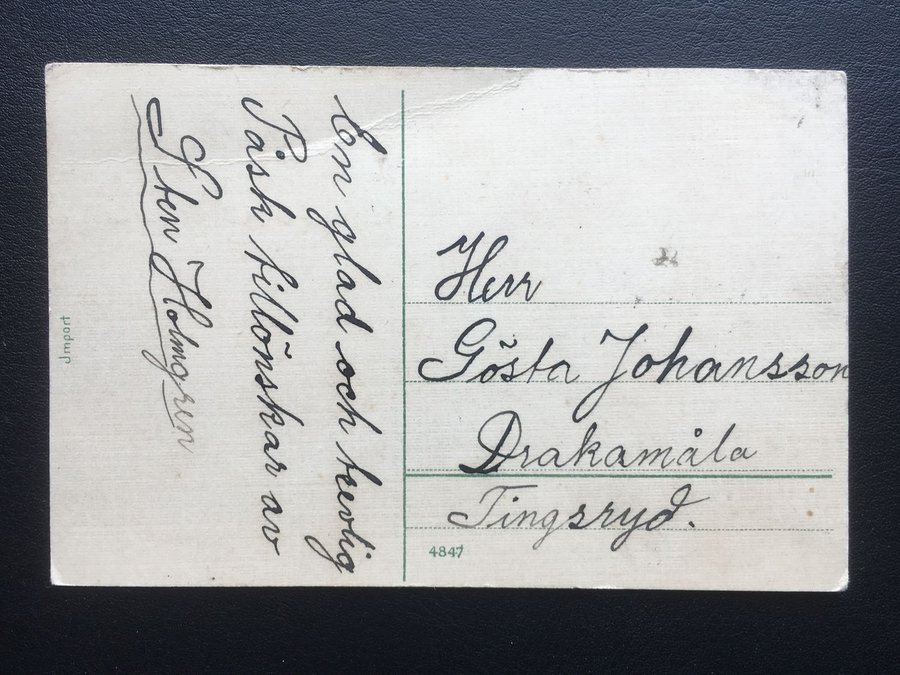 En glad och trevlig
Påsk tillönskar av
Sten Holmgren
Import
Herr
Gösta Johansson
Drakamåla
Tingsryd.
4847